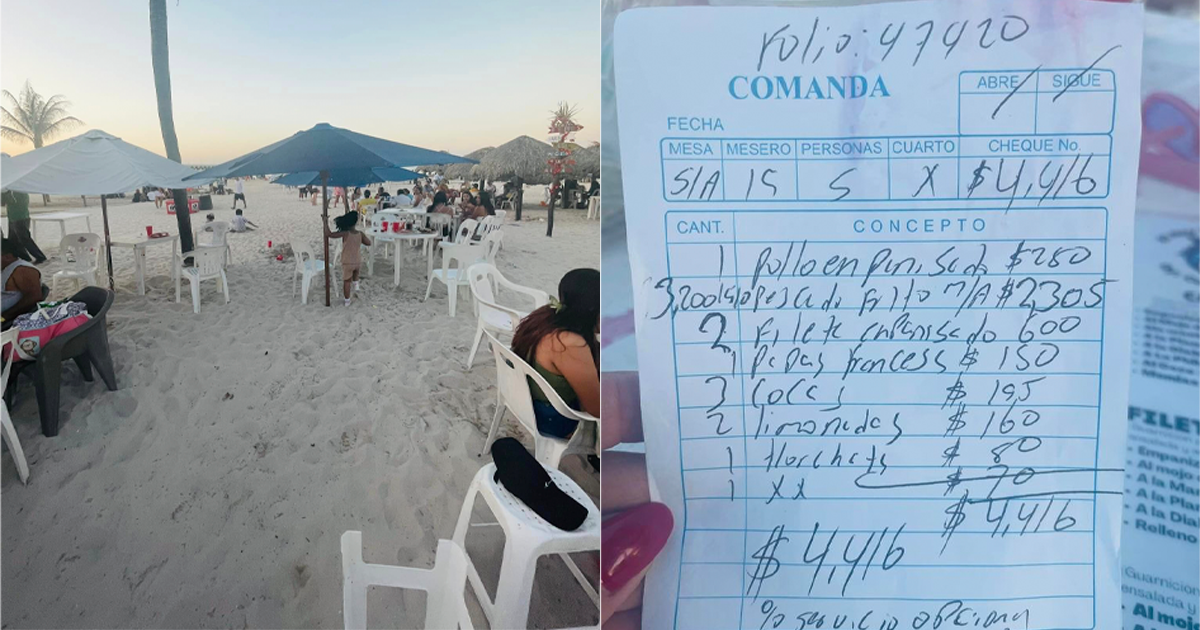 Folio: 47420
COMANDA
ABRE SIGUE
FECHA
MESA MESERO PERSONAS CUARTO CHEQUE No.
S/A 15 5 X $4,416
CANT. CONCEPTO
1 pollo enpanisado $280
3,200 pescado frito M/A $2305
2 Filete enpanisado 600
1 papas francesas $ 150
3 cocas $ 195
2 limonadas $ 160
1 Horchata $ 80
1 XX $ 70
$ 4,416
$ 4,416
% servicio opcional
FILE
- Empani
- Al mojo
- A la Ma
- A la Pla
- A la Dia
- Relleno
Guarnicion
ensalada y
- Al mojo